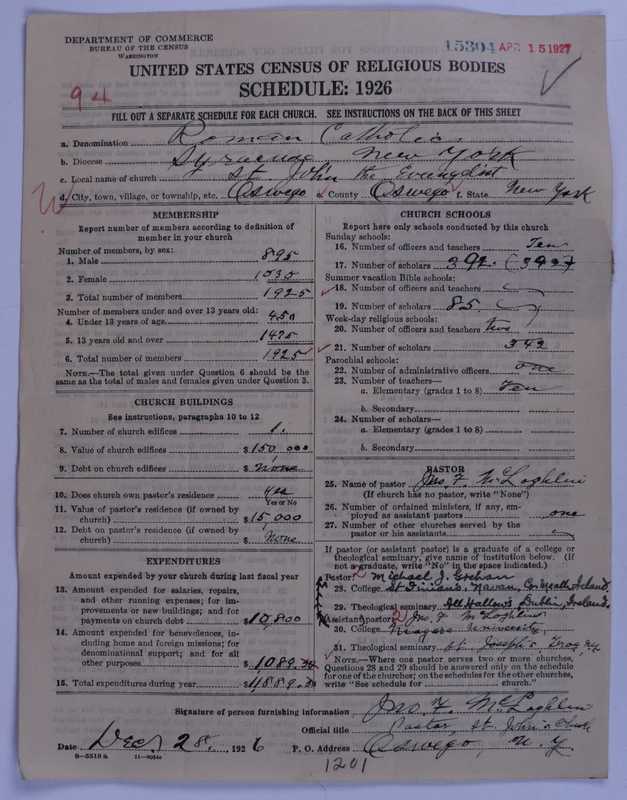 DEPARTMENT OF COMMERCE
BUREAU OF THE CENSUS
WASHINGTON
15304 APR 15 1927
UNITED STATES CENSUS OF RELIGIOUS BODIES
SCHEDULE: 1926
94
FILL OUT A SEPARATE SCHEDULE FOR EACH CHURCH. SEE INSTRUCTIONS ON THE BACK OF THIS SHEET
a. Denomination Roman Catholic
b. Diocese Syracuse New York
c. Local name of church St John the Evangelist
d. City, town, village, or township, etc. Oswego e. County Oswego f. State New York
MEMBERSHIP
Report number of members according to definition of member in your church
Number of members, by sex:
1. Male 895
2. Female 1030
3. Total number of members 1925
Number of members under and over 13 years old:
4. Under 13 years of age 450
5. 13 years old and over 1475
6. Total number of members 1925
NOTE.—The total given under Question 6 should be the same as the total of males and females given under Question 3.
CHURCH BUILDINGS
See instructions, paragraphs 10 to 12
7. Number of church edifices 1.
8. Value of church edifices $150,000
9. Debt on church edifices $None
10. Does church own pastor's residence Yes
Yes or No
11. Value of pastor's residence (if owned by church) $15,000
12. Debt on pastor's residence (if owned by church) $None
EXPENDITURES
Amount expended by your church during last fiscal year
13. Amount expended for salaries, repairs, and other running expenses; for improvements or new buildings; and for payments on church debt $10,800
14. Amount expended for benevolences, including home and foreign missions; for denominational support; and for all other purposes $1089.
15. Total expenditures during year $11889.
CHURCH SCHOOLS
Report here only schools conducted by this church
Sunday schools:
16. Number of officers and teachers Ten
17. Number of scholars 392. (392)
Summer vacation Bible schools:
18. Number of officers and teachers
19. Number of scholars 85
Week-day religious schools:
20. Number of officers and teachers two
21. Number of scholars 342
Parochial schools:
22. Number of administrative officers one
23. Number of teachers—
a. Elementary (grades 1 to 8) Ten
b. Secondary
24. Number of scholars—
a. Elementary (grades 1 to 8)
b. Secondary
PASTOR
25. Name of pastor Jno. F. McLoghlin
(If church has no pastor, write "None")
26. Number of ordained ministers, if any, employed as assistant pastors one
27. Number of other churches served by the pastor or his assistants
If pastor (or assistant pastor) is a graduate of a college or theological seminary, give name of institution below. (If not a graduate, write "No" in the space indicated.)
Pastor: 2 Michael J. Grehan
28. College St Finians, Navan, Co. Meath, Ireland
29. Theological seminary All Hallows, Dublin, Ireland.
Assistant pastor: 2 Jno. F. McLoghlin
30. College Niagara University
31. Theological seminary St. Joseph's Troy, N.Y.
NOTE.—Where one pastor serves two or more churches, Questions 28 and 29 should be answered only on the schedule for one of the churches; on the schedules for the other churches, write "See schedule for ........ church."
Signature of person furnishing information Jno. F. McLoghlin
Official title Pastor, St. John's Church
Date Dec, 28, 1926 P. O. Address Oswego, N.Y.
8—5519a 11—9054a
1201